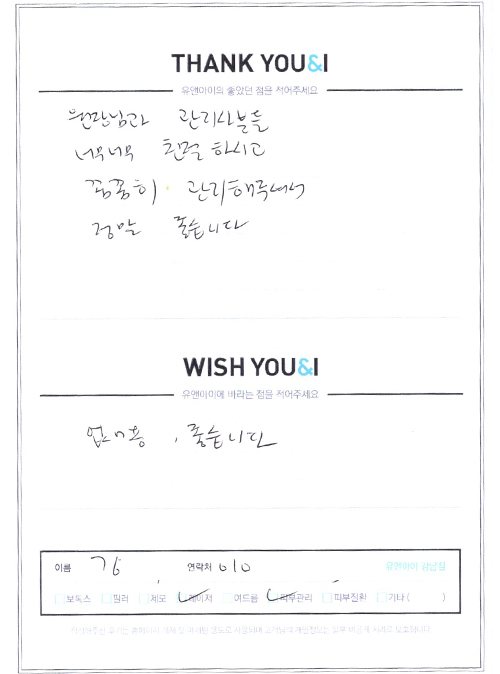 THANK YOU&I
유앤아이의 좋았던 점을 적어주세요
원장님과 관리사분들
너무너무 친절하시고
꼼꼼히 관리해주셔서
정말 좋습니다
WISH YOU&I
유앤아이에 바라는 점을 적어주세요
없어용, 좋습니다
이름 연락처 010 유앤아이 강남점
보톡스 필러 제모 레이저 여드름 피부관리 피부질환 기타 ( )